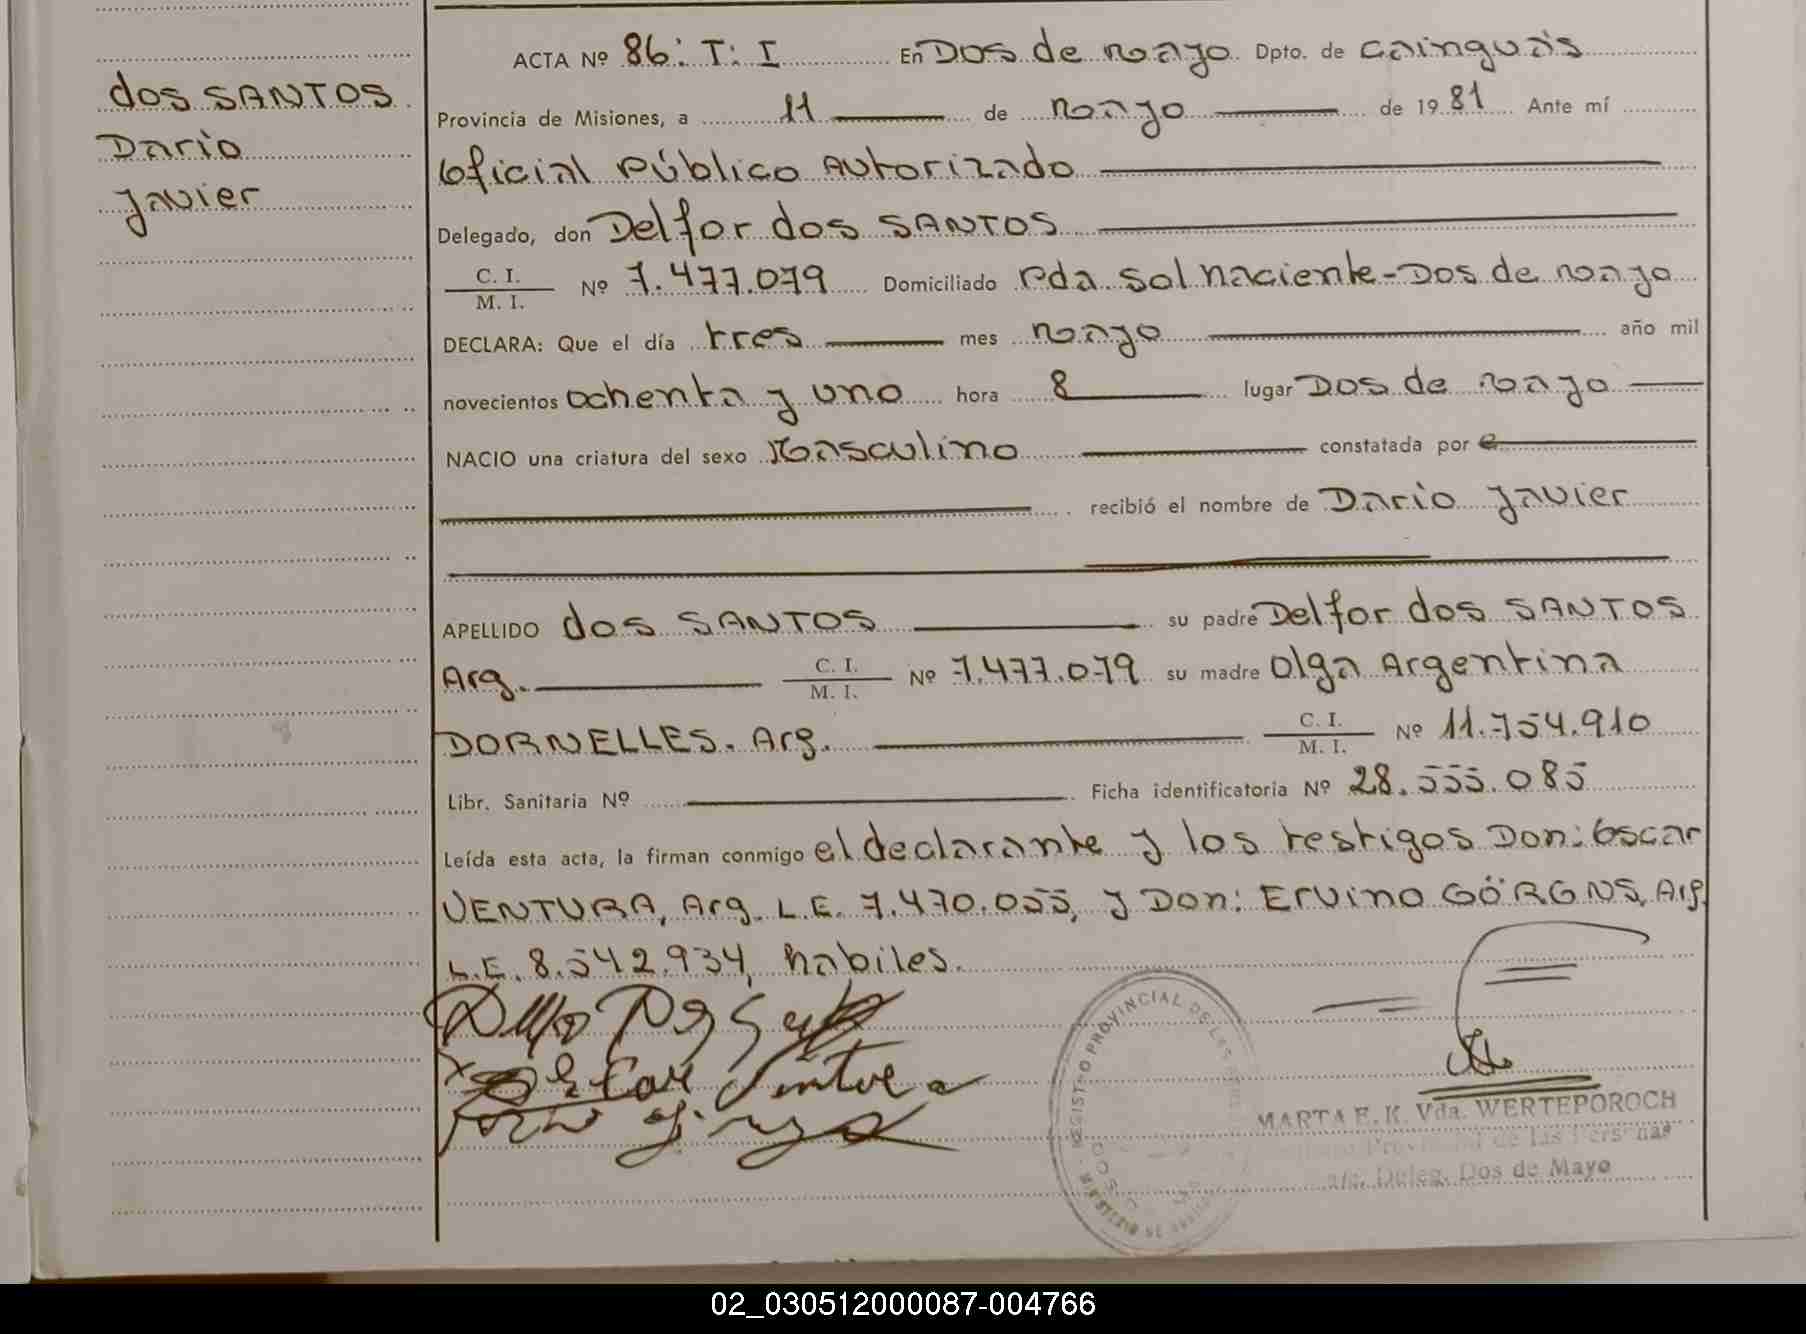 dos SANTOS
Dario
Javier
ACTA Nº 86: T: I En Dos de mayo Dpto. de Cainguás
Provincia de Misiones, a 11 de mayo de 1981 Ante mí
Oficial Público Autorizado
Delegado, don Delfor dos SANTOS
C. I.
M. I.
Nº 7.477.079 Domiciliado Pda. Sol Naciente-Dos de mayo
DECLARA: Que el día tres mes mayo año mil
novecientos ochenta y uno hora 8 lugar Dos de mayo
NACIO una criatura del sexo Masculino constatada por
recibió el nombre de Dario Javier
APELLIDO dos SANTOS su padre Delfor dos SANTOS
Arg. C. I. M. I. Nº 7.477.079 su madre Olga Argentina
DORNELLES. Arg. C. I. M. I. Nº 11.754.910
Libr. Sanitaria Nº Ficha identificatoria Nº 28.555.085
Leída esta acta, la firman conmigo el declarante y los testigos Don: Oscar
VENTURA, Arg. L.E. 7.470.055, y Don: Ervino GÖRGNS, Arg.
L.E. 8.542.934, habiles.
Oscar Ventura
REGISTRO PROVINCIAL DE LAS
MARTA E. K. Vda. WERTEPOROCH
Provincial de las Personas
a/c. Deleg. Dos de Mayo
02_030512000087-004766